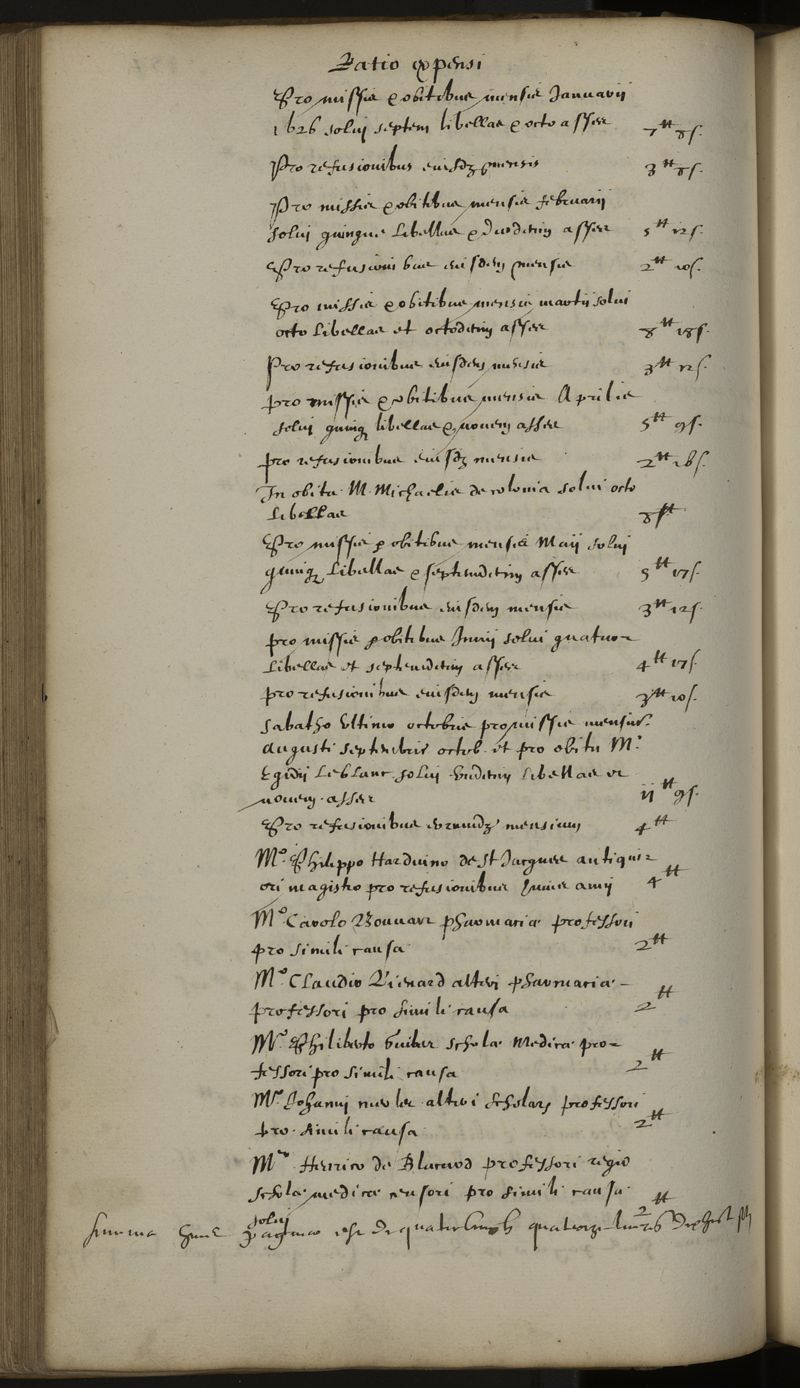 Ratio expensi
Pro missis & obitibus mensis Januarii
1626 solui septem libellas & octo asses 7tt 8s.
Pro refusionibus eiusdz mensis 3tt 8s.
Pro missis & obitibus mensis februarij
solui quinque libellas & duodecim asses 5tt 12s.
Pro refusionibus eiusdem mensis 2tt 10s.
Pro missis & obitibus mensis martii solui
octo libellas et octodecim asses 8tt 18s.
Pro refusionibus eiusdem mensis 3tt 12s.
pro missis & obitibus mensis Aprilis
solui quinq libellas & novem asses 5tt 9s.
pro refusionibus eiusdz mensis 2tt 16s.
In obitu M. Michaelis de colonia solui octo
Libellas 8tt
Pro missis & obitibus mensis Maij solui
quinq Libellas & septemdecim asses 5tt 17s.
Pro refusionibus eiusdem mensis 3tt 12s.
pro missis & obitibus Junij solui quatuor
libellas et septemdecim asses 4tt 17s.
pro refusionibus eiusdem mensis 3tt 10s.
sabatho ultimo octobris pro missis mensium
Augusti septembris octob. et pro obitu M.
Egidii Leblanc solui undecim libellas et
novem asses 11tt 9s.
Pro refusionibus eorumdz mensium 4tt
Mo. Philippo Harduino de St Jacques antiqui-
ori magistro pro refusionibus huius anni 4tt
Mo Carolo Bouvart pharmaciae professori
pro simili causa 2tt
Mo Claudio Lienard alteri pharmaciae
professori pro simili causa 2tt
Mo Philiberto Guibert scholae Medicae pro-
fessori pro simili causa 2tt
Mo Johanni alteri scholarum professori
pro simili causa 2tt
Mo Henrico de Blacvod professori regio
scholae medicae censori pro simili causa 2tt
solui
summa huius paginae est de quatre vingts quatorze livres dix huit s